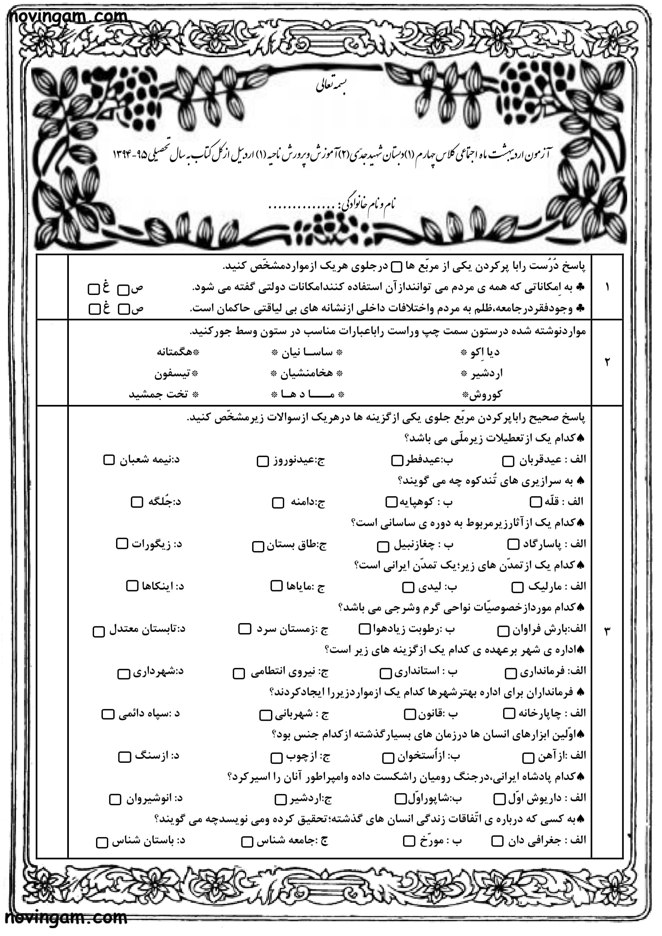 novingam.com
بسمه تعالی
آزمون اردیبهشت ماه اجتماعی کلاس چهارم (۱) دبستان شهید جدی (۲) آموزش و پرورش ناحیه (۱) اردبیل از کل کتاب به سال تحصیلی ۹۵-۱۳۹۴
نام و نام خانوادگی: ..............
۱
پاسخ دُرُست رابا پرکردن یکی از مربّع ها □ درجلوی هریک ازمواردمشخّص کنید.
♣ به اِمکاناتی که همه ی مردم می تواننداز آن استفاده کنندامکانات دولتی گفته می شود. ص□ غ□
♣ وجودفقردرجامعه،ظلم به مردم واختلافات داخلی ازنشانه های بی لیاقتی حاکمان است. ص□ غ□
۲
مواردنوشته شده درستون سمت چپ وراست راباعبارات مناسب در ستون وسط جورکنید.
دیا اِکو * * ساسـا نیان * *هگمتانه
اردشیر * * هخامنشیان * *تیسفون
کوروش* * مــــا د هـا * * تخت جمشید
۳
پاسخ صحیح راباپرکردن مربّع جلوی یکی ازگزینه ها درهریک ازسوالات زیرمشخّص کنید.
♠کدام یک ازتعطیلات زیرملّی می باشد؟
الف : عیدقربان □ ب:عیدفطر□ ج:عیدنوروز □ د:نیمه شعبان □
♠ به سرازیری های تُندکوه چه می گویند؟
الف : قلّه □ ب : کوهپایه□ ج:دامنه □ د:جُلگه □
♠کدام یک ازآثارزیرمربوط به دوره ی ساسانی است؟
الف : پاسارگاد □ ب : چغازنبیل □ ج:طاق بستان □ د: زیگورات □
♠کدام یک ازتمدّن های زیر؛یک تمدّن ایرانی است؟
الف : مارلیک □ ب: لیدی □ ج :مایاها □ د: اینکاها □
♠کدام موردازخصوصیّات نواحی گرم وشرجی می باشد؟
الف:بارش فراوان □ ب :رطوبت زیادهوا□ ج :زمستان سرد □ د:تابستان معتدل □
♠اداره ی شهر برعهده ی کدام یک ازگزینه های زیر است؟
الف: فرمانداری □ ب : استانداری □ ج: نیروی انتظامی □ د:شهرداری □
♠ فرمانداران برای اداره بهترشهرها کدام یک ازمواردزیررا ایجادکردند؟
الف : چاپارخانه □ ب :قانون□ ج : شهربانی □ د :سپاه دائمی □
♠اوّلین ابزارهای انسان ها درزمان های بسیارگذشته ازکدام جنس بود؟
الف :ازآهن □ ب: ازاُستخوان □ ج: ازچوب □ د: ازسنگ □
♠کدام پادشاه ایرانی،درجنگ رومیان راشکست داده وامپراطور آنان را اسیرکرد؟
الف : داریوش اوّل □ ب:شاپوراوّل□ ج:اردشیر □ د: انوشیروان □
♠به کسی که درباره ی اتّفاقات زندگی انسان های گذشته؛تحقیق کرده ومی نویسدچه می گویند؟
الف : جغرافی دان □ ب : مورّخ □ ج :جامعه شناس □ د: باستان شناس □
novingam.com